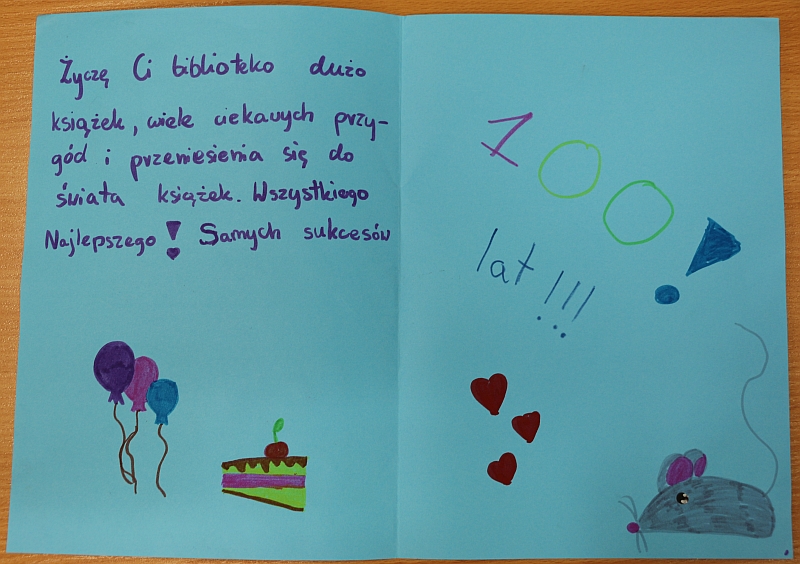 Życzę Ci biblioteko dużo
książek, wiele ciekawych przy-
gód i przeniesienia się do
świata książek. Wszystkiego
Najlepszego! Samych sukcesów
100!
lat!!!